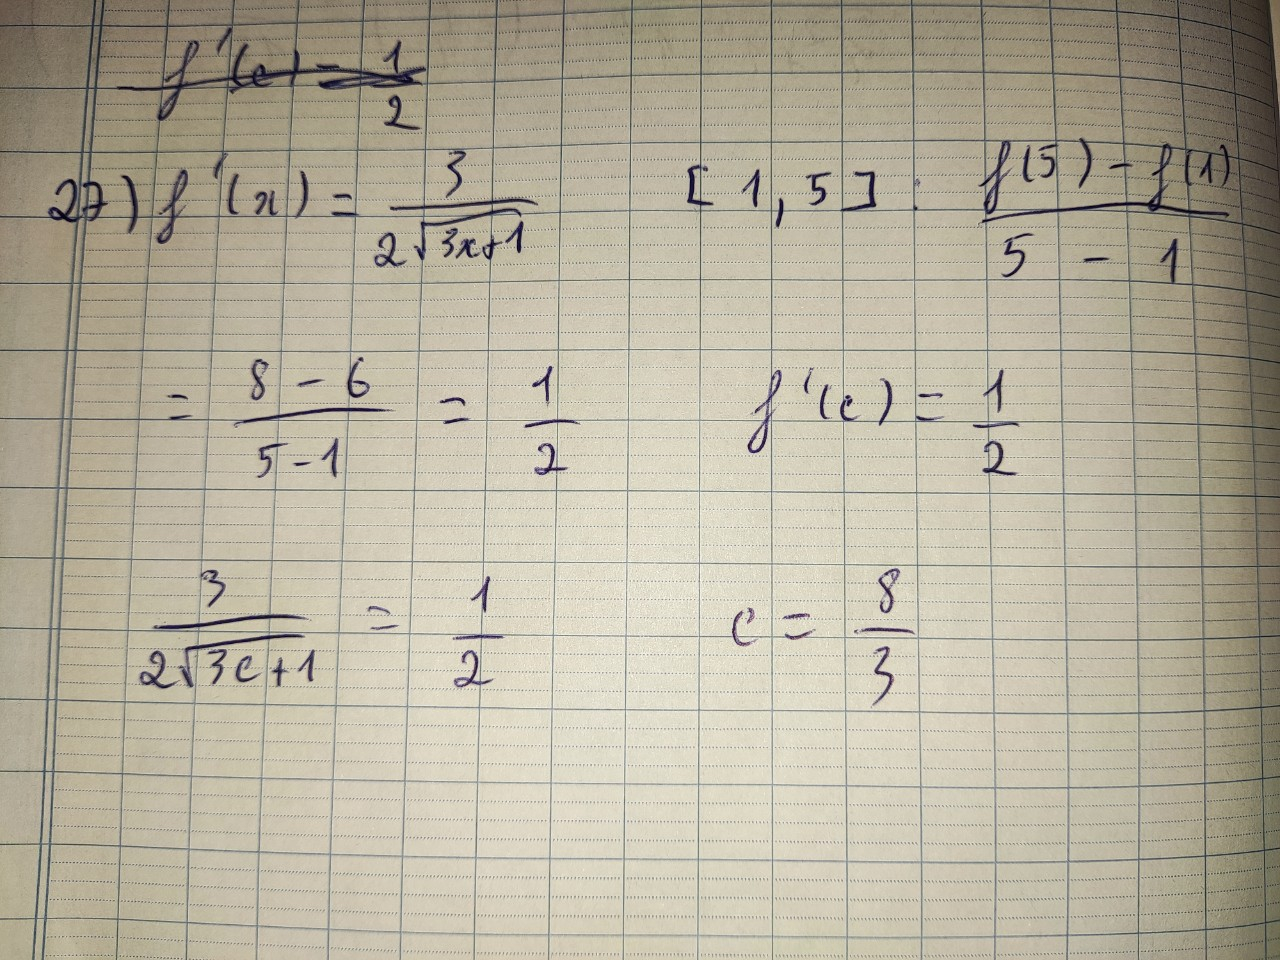 f'(c) = 1/2
27) f'(x) = 3/(2√(3x+1)) [1, 5] : (f(5) - f(1))/(5 - 1)
= (8 - 6)/(5 - 1) = 1/2 f'(c) = 1/2
3/(2√(3c+1)) = 1/2 c = 8/3